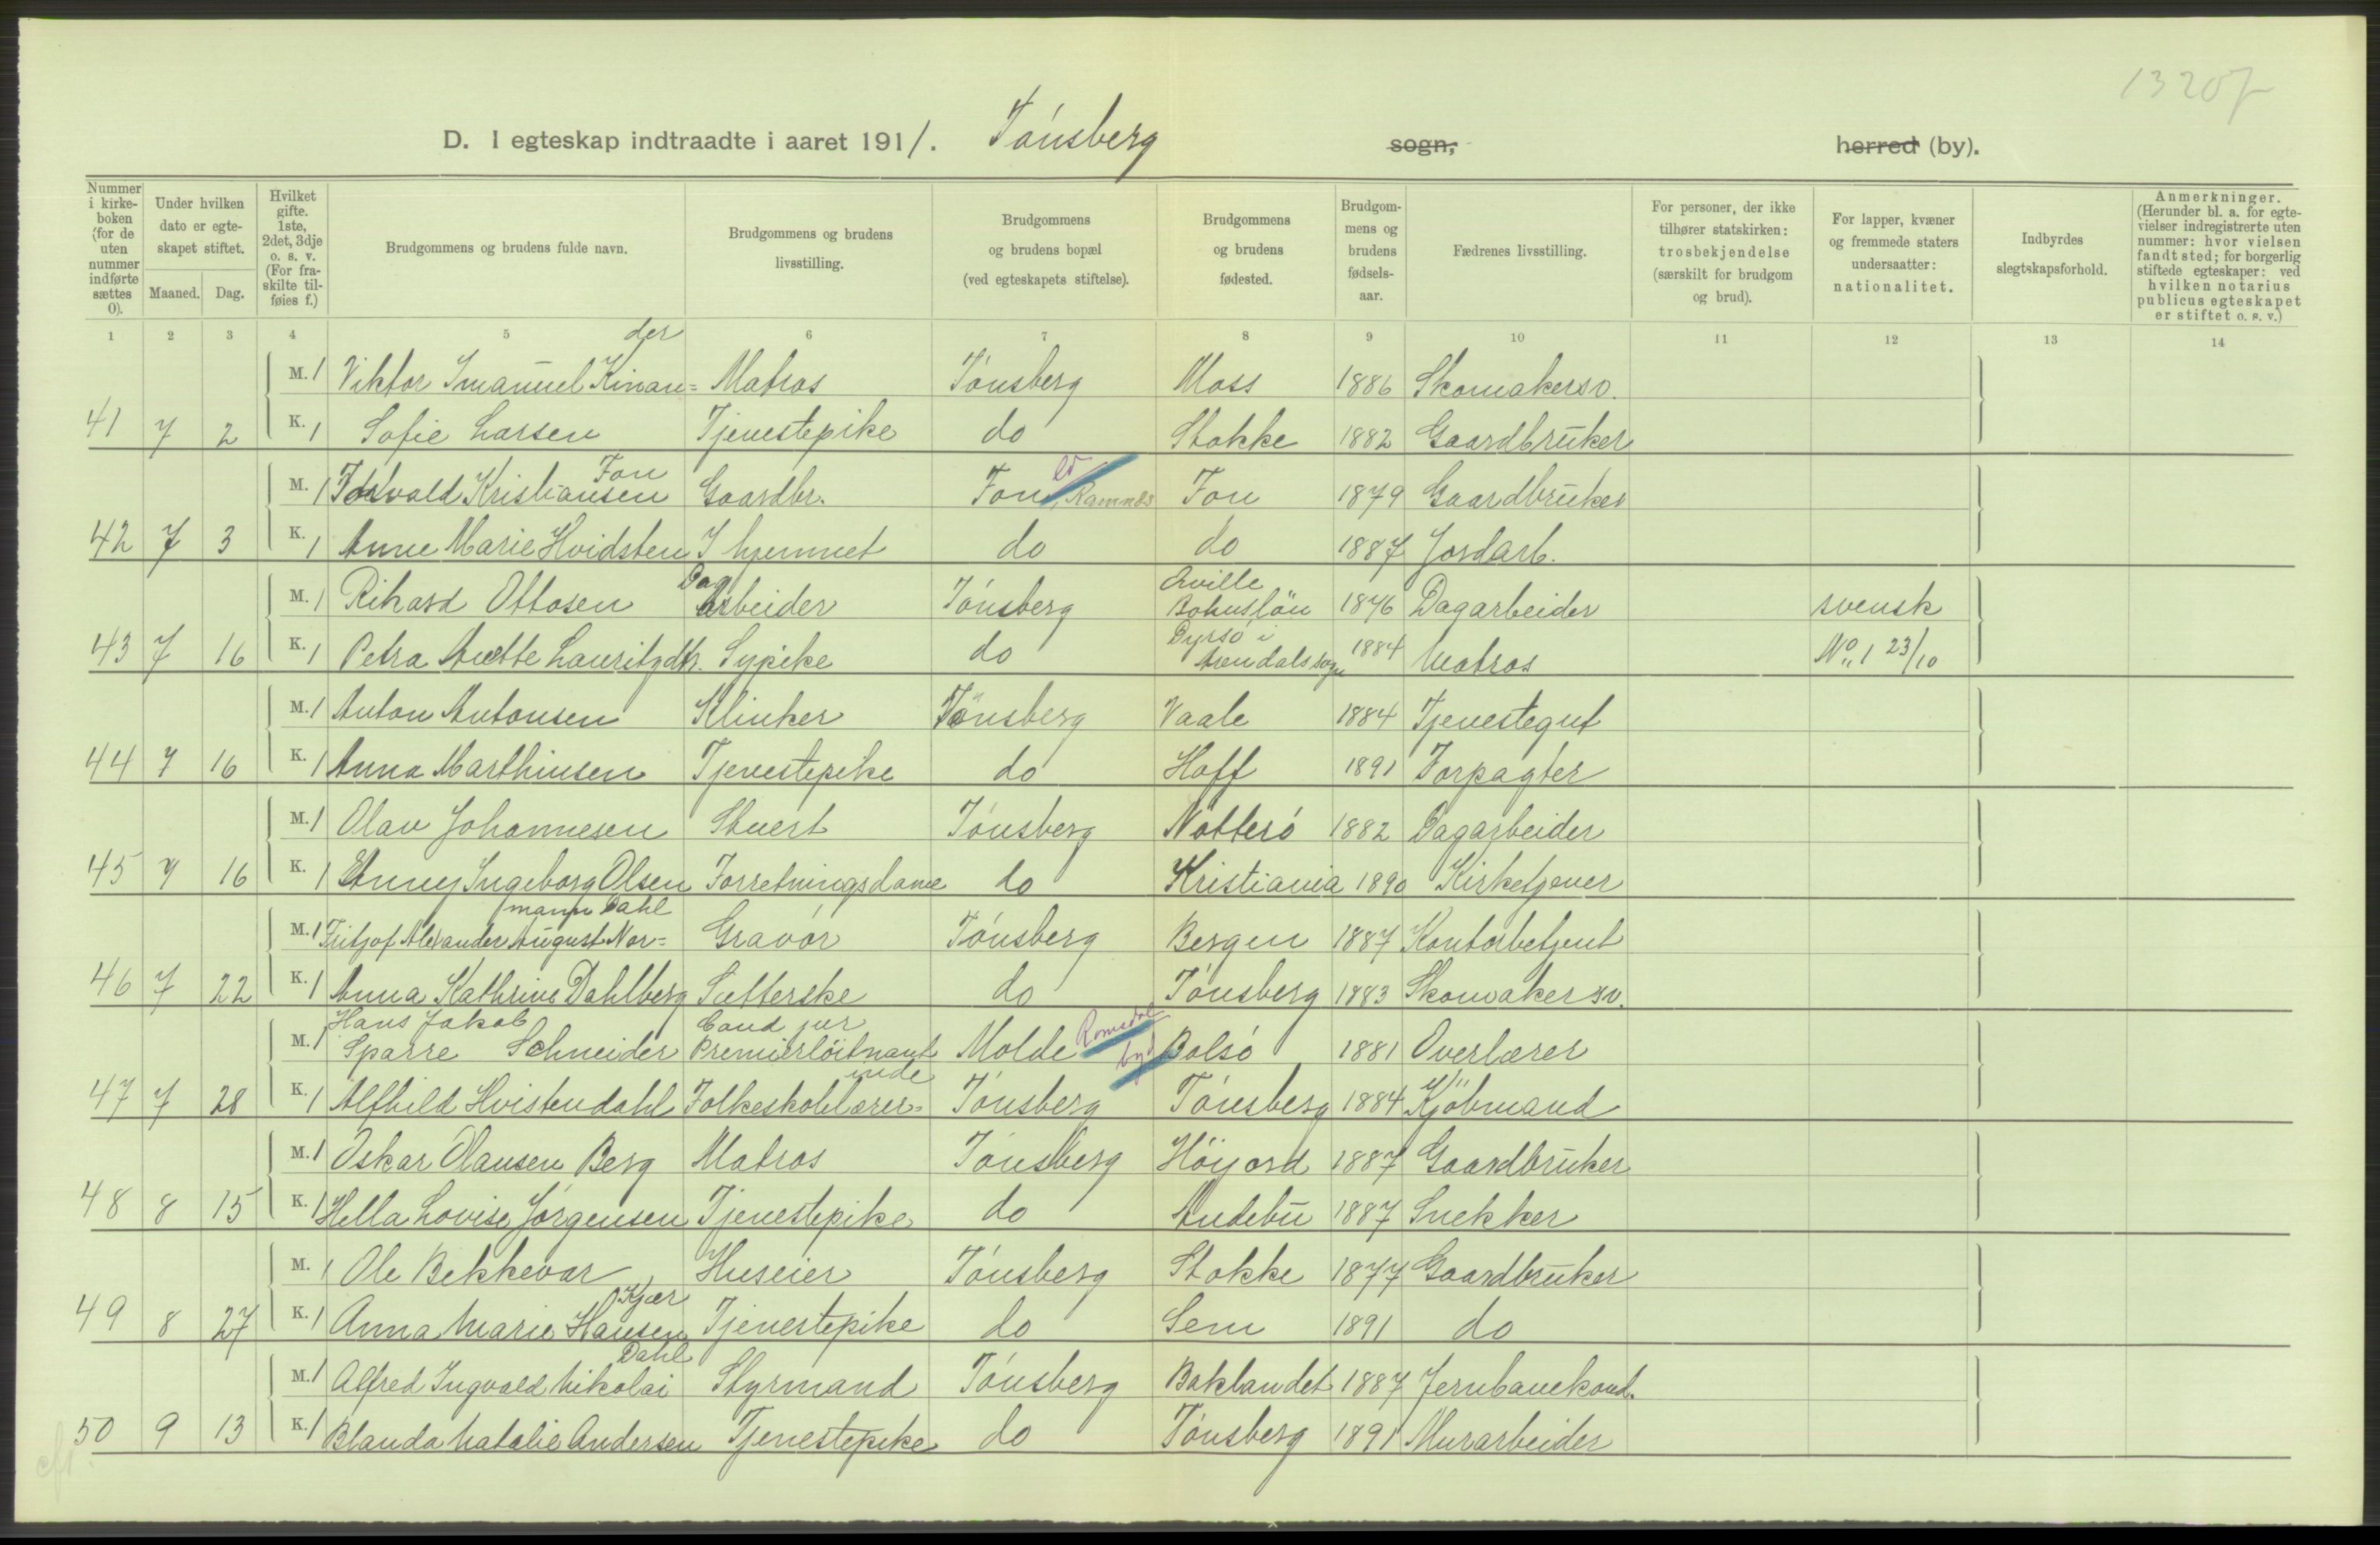 13207
D. I egteskap indtraadte i aaret 1911. Tónsberg sogn, herred (by).
Nummer i kirke-boken (for de uten nummer indførte sættes 0).
Under hvilken dato er egte-skapet stiftet.
Maaned. Dag.
Hvilket gifte. 1ste, 2det, 3dje o. s. v. (For fra-skilte til-føies f.)
Brudgommens og brudens fulde navn.
Brudgommens og brudens livsstilling.
Brudgommens og brudens bopæl (ved egteskapets stiftelse).
Brudgommens og brudens fødested.
Brudgom-mens og brudens fødsels-aar.
Fædrenes livsstilling.
For personer, der ikke tilhører statskirken: trosbekjendelse (særskilt for brudgom og brud).
For lapper, kvæner og fremmede staters undersaatter: nationalitet.
Indbyrdes slegtskapsforhold.
Anmerkninger. (Herunder bl. a. for egte-vielser indregistrerte uten nummer: hvor vielsen fandt sted; for borgerlig stiftede egteskaper: ved hvilken notarius publicus egteskapet er stiftet o. s. v.)
1 2 3 4 5 6 7 8 9 10 11 12 13 14
der
M. 1 Viktor Imanuel Kinan= Matros Tónsberg Moss 1886 Skomakersv.
41 7 2 K. 1 Sofie Larsen Tjenestepike do Stokke 1882 Gaardbruker
Fon
M. 1 Torvald Kristiansen Gaardbr. Fon, Ramnes Fon 1879 Gaardbruker
42 7 3 K. 1 Anne Marie Hvidsten I hjemmet do do 1887 Jordarb.
Dag Qville
M. 1 Rikard Ottosen Arbeider Tónsberg Bohuslän 1876 Dagarbeider svensk
Dyrsó i
43 7 16 K. 1 Petra Anette Lauritzdtr. Sypike do Arendals sogn 1884 Matros No 1 23/10
M. 1 Anton Antonsen Klinker Tönsberg Vaale 1884 Tjenestegut
44 7 16 K. 1 Anna Marthinsen Tjenestepike do Hoff 1891 Forpagter
M. 1 Olav Johannesen Stuert Tónsberg Nótteró 1882 Dagarbeider
45 7 16 K. 1 Anny Ingeborg Olsen Forretningsdame do Kristiania 1890 Kirketjener
mann Dahl
M. 1 Fritjof Alexander August Nor= Gravór Tónsberg Bergen 1887 Kontorbetjent
46 7 22 K. 1 Anna Kathrine Dahlberg Sætterske do Tónsberg 1883 Skomakersv.
Hans Jakob Cand jur Romsdal
M. 1 Sparre Schneider Premierlöitnant Molde by Bolsó 1881 Overlærer
inde
47 7 28 K. 1 Alfhild Hvistendahl Folkeskolelærer= Tónsberg Tónsberg 1884 Kjöbmand
M. 1 Oskar Olausen Berg Matros Tónsberg Höijord 1887 Gaardbruker
48 8 15 K. 1 Hella Lovise Jörgensen Tjenestepike do Andebu 1887 Snekker
M. 1 Ole Bekkevar Huseier Tónsberg Stokke 1877 Gaardbruker
Kjær
49 8 27 K. 1 Anna Marie Hansen Tjenestepike do Sem 1891 do
Dahl
M. 1 Alfred Ingvald Nikolai Styrmand Tónsberg Baklandet 1887 Jernbanekond.
50 9 13 K. 1 Blanda Natalie Andersen Tjenestepike do Tónsberg 1891 Murarbeider